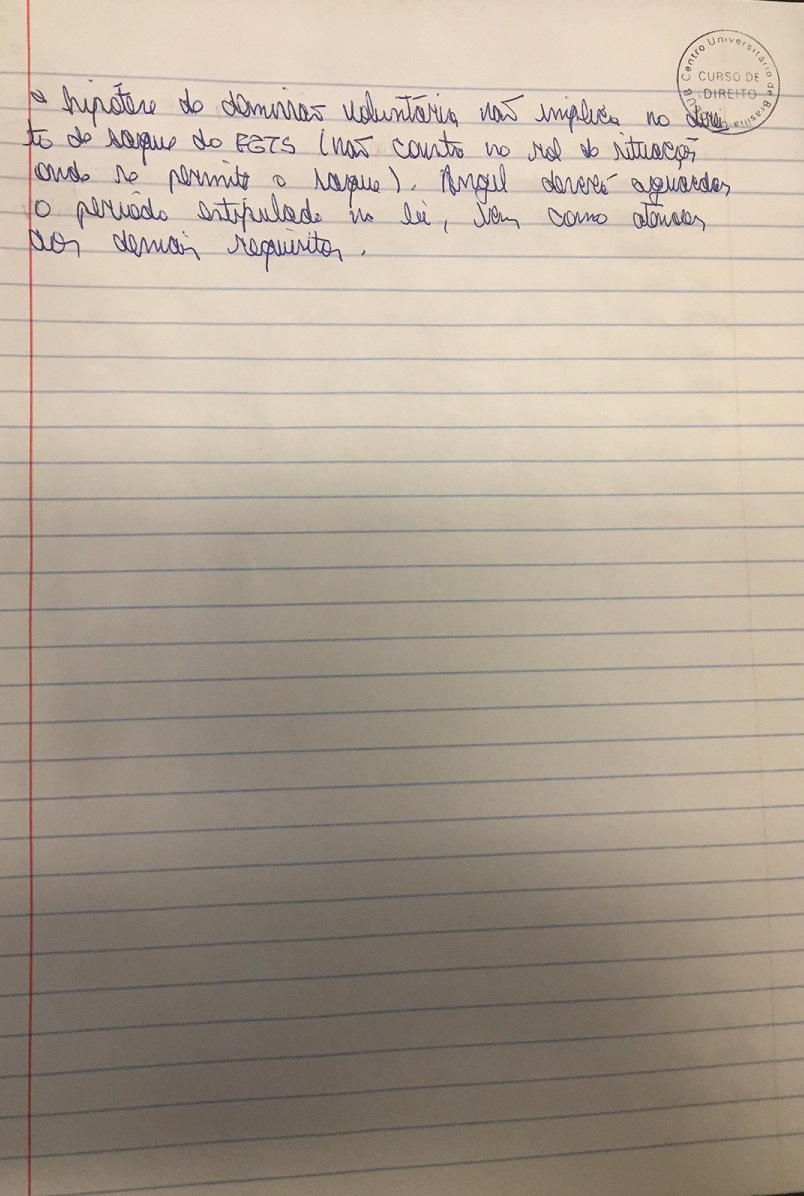 Centro Universitário de Brasília UB
CURSO DE
DIREITO
a hipótese de demissão voluntária não implica no direi
to de saque do FGTS (não consta no rol de situações
onde se permite o saque). Angel deverá aguardar
o período estipulado na lei, bem como atender
aos demais requisitos.